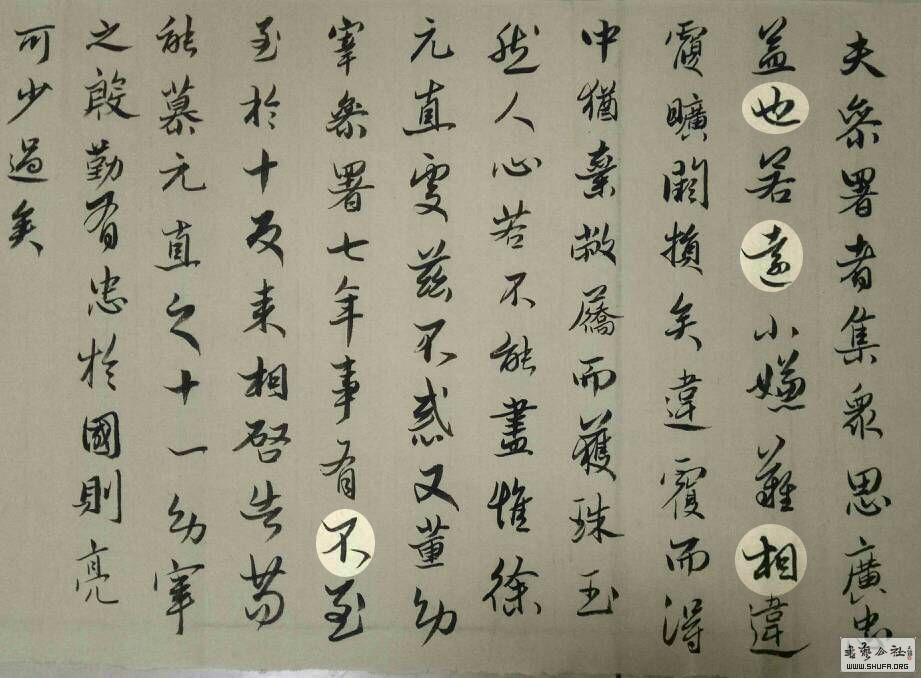 夫參署者集眾思廣忠
益也若遠小嫌難相違
覆曠闕損矣違覆而得
中猶棄敝屩而獲珠玉
然人心苦不能盡惟徐
元直處茲不惑又董幼
宰參署七年事有不至
至於十反來相啓告苟
能慕元直之十一幼宰
之殷勤有忠於國則亮
可少過矣
WWW.SHUFA.ORG